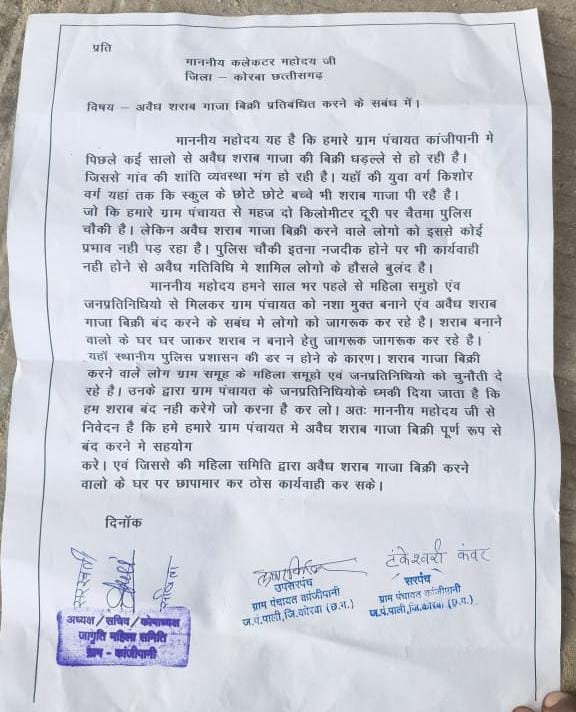 प्रति
माननीय कलेकटर महोदय जी
जिला – कोरबा छत्तीसगढ़
विषय – अवैध शराब गाजा बिक्री प्रतिबंधित करने के सबंध में।
माननीय महोदय यह है कि हमारे ग्राम पंचायत कांजीपानी मे
पिछले कई सालो से अवैध शराब गाजा की बिक्री घड़ल्ले से हो रही है।
जिससे गांव की शांति व्यवस्था भंग हो रही है। यहाँ की युवा वर्ग किशोर
वर्ग यहां तक कि स्कुल के छोटे छोटे बच्चे भी शराब गाजा पी रहै है।
जो कि हमारे ग्राम पंचायत से महज दो किलोमीटर दूरी पर चैतमा पुलिस
चौकी है। लेकिन अवैध शराब गाजा बिक्री करने वाले लोगो को इससे कोई
प्रभाव नही पड़ रहा है। पुलिस चौकी इतना नजदीक होने पर भी कार्यवाही
नही होने से अवैध गतिविधि मे शामिल लोगो के हौसले बुलंद है।
माननीय महोदय हमने साल भर पहले से महिला समुहो एंव
जनप्रतिनिधियो से मिलकर ग्राम पंचायत को नशा मुक्त बनाने एंव अवैध शराब
गाजा बिक्री बंद करने के सबंध मे लोगो को जागरूक कर रहे है। शराब बनाने
वालो के घर घर जाकर शराब न बनाने हेतु जागरूक जागरूक कर रहे है।
यहाँ स्थानीय पुलिस प्रशासन की डर न होने के कारण। शराब गाजा बिक्री
करने वाले लोग ग्राम समूह के महिला समूहो एंव जनप्रतिनिधियो को चुनौती दे
रहे है। उनके द्वारा ग्राम पंचायत के जनप्रतिनिधियोके धमकी दिया जाता है कि
हम शराब बंद नही करेगे जो करना है कर लो। अतः माननीय महोदय जी से
निवेदन है कि हमे हमारे ग्राम पंचायत मे अवैध शराब गाजा बिक्री पूर्ण रूप से
बंद करने मे सहयोग
करे। एवं जिससे की महिला समिति द्वारा अवैध शराब गाजा बिक्री करने
वालो के घर पर छापामार कर ठोस कार्यवाही कर सके।
दिनॉक
सरस्वती
टंकेश्वरी कंवर
उपसरपंच
ग्राम पंचायत कांजीपानी
ज.पं.पाली,जि.कोरबा (छ.ग.)
सरपंच
ग्राम पंचायत कांजीपानी
ज.पं.पाली,जि.कोरबा (छ.ग.)
अध्यक्ष/सचिव/कोषाध्यक्ष
जागृति महिला समिति
ग्राम - कांजीपानी